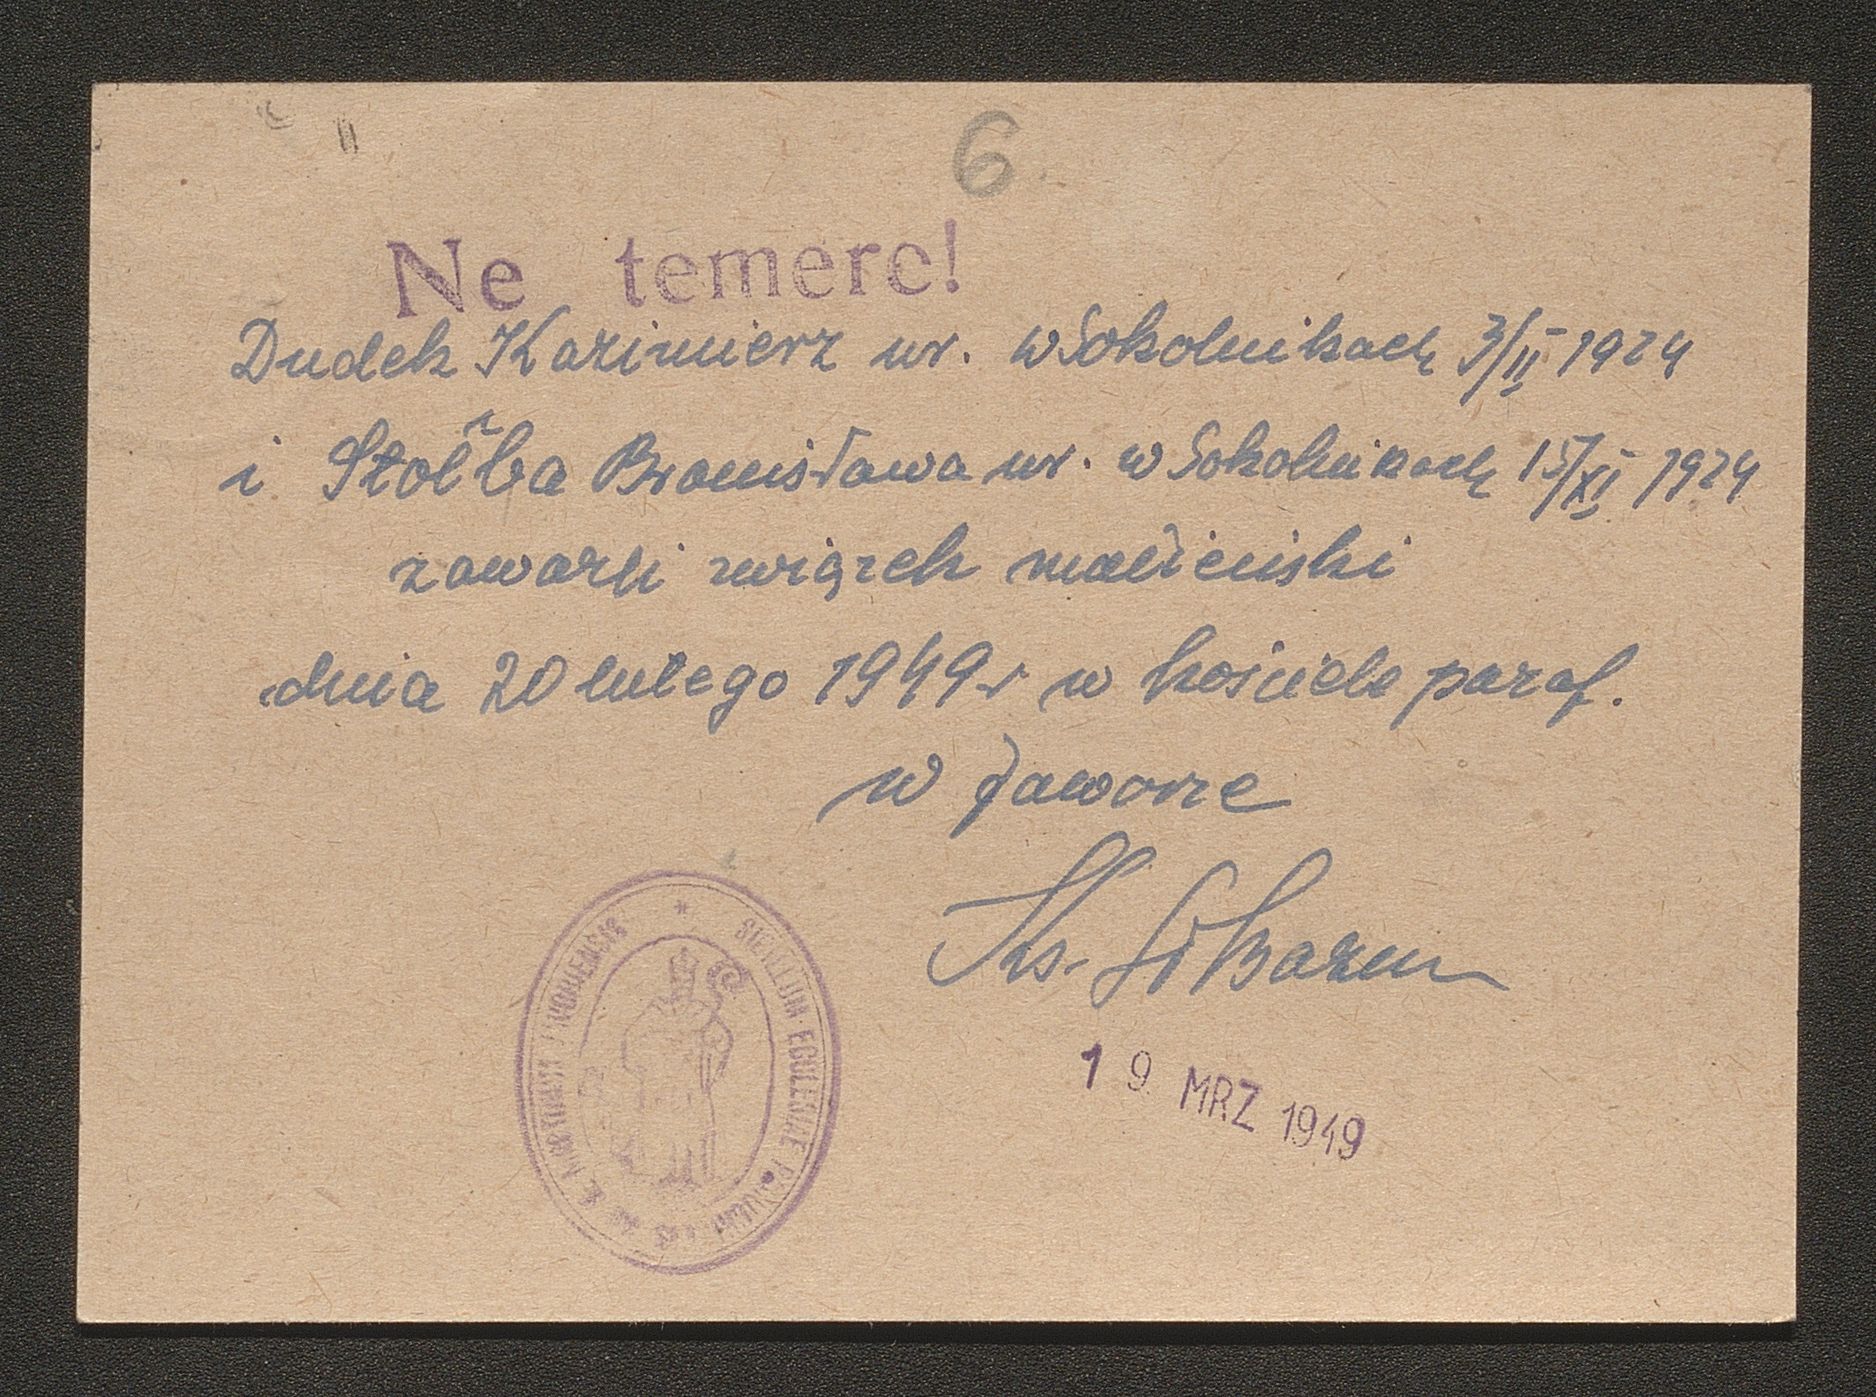 6.
Ne temere!
Dudek Kazimierz ur. w Sokolnikach 3/II 1924
i Bronisława ur. w Sokolnikach 15/XI 1924
zawarli związek małżeński
dnia 20 lutego 1949 r w kościele paraf.
w Jaworze
Ks.
19 MRZ 1949
SIGILLUM ECCLESIAE